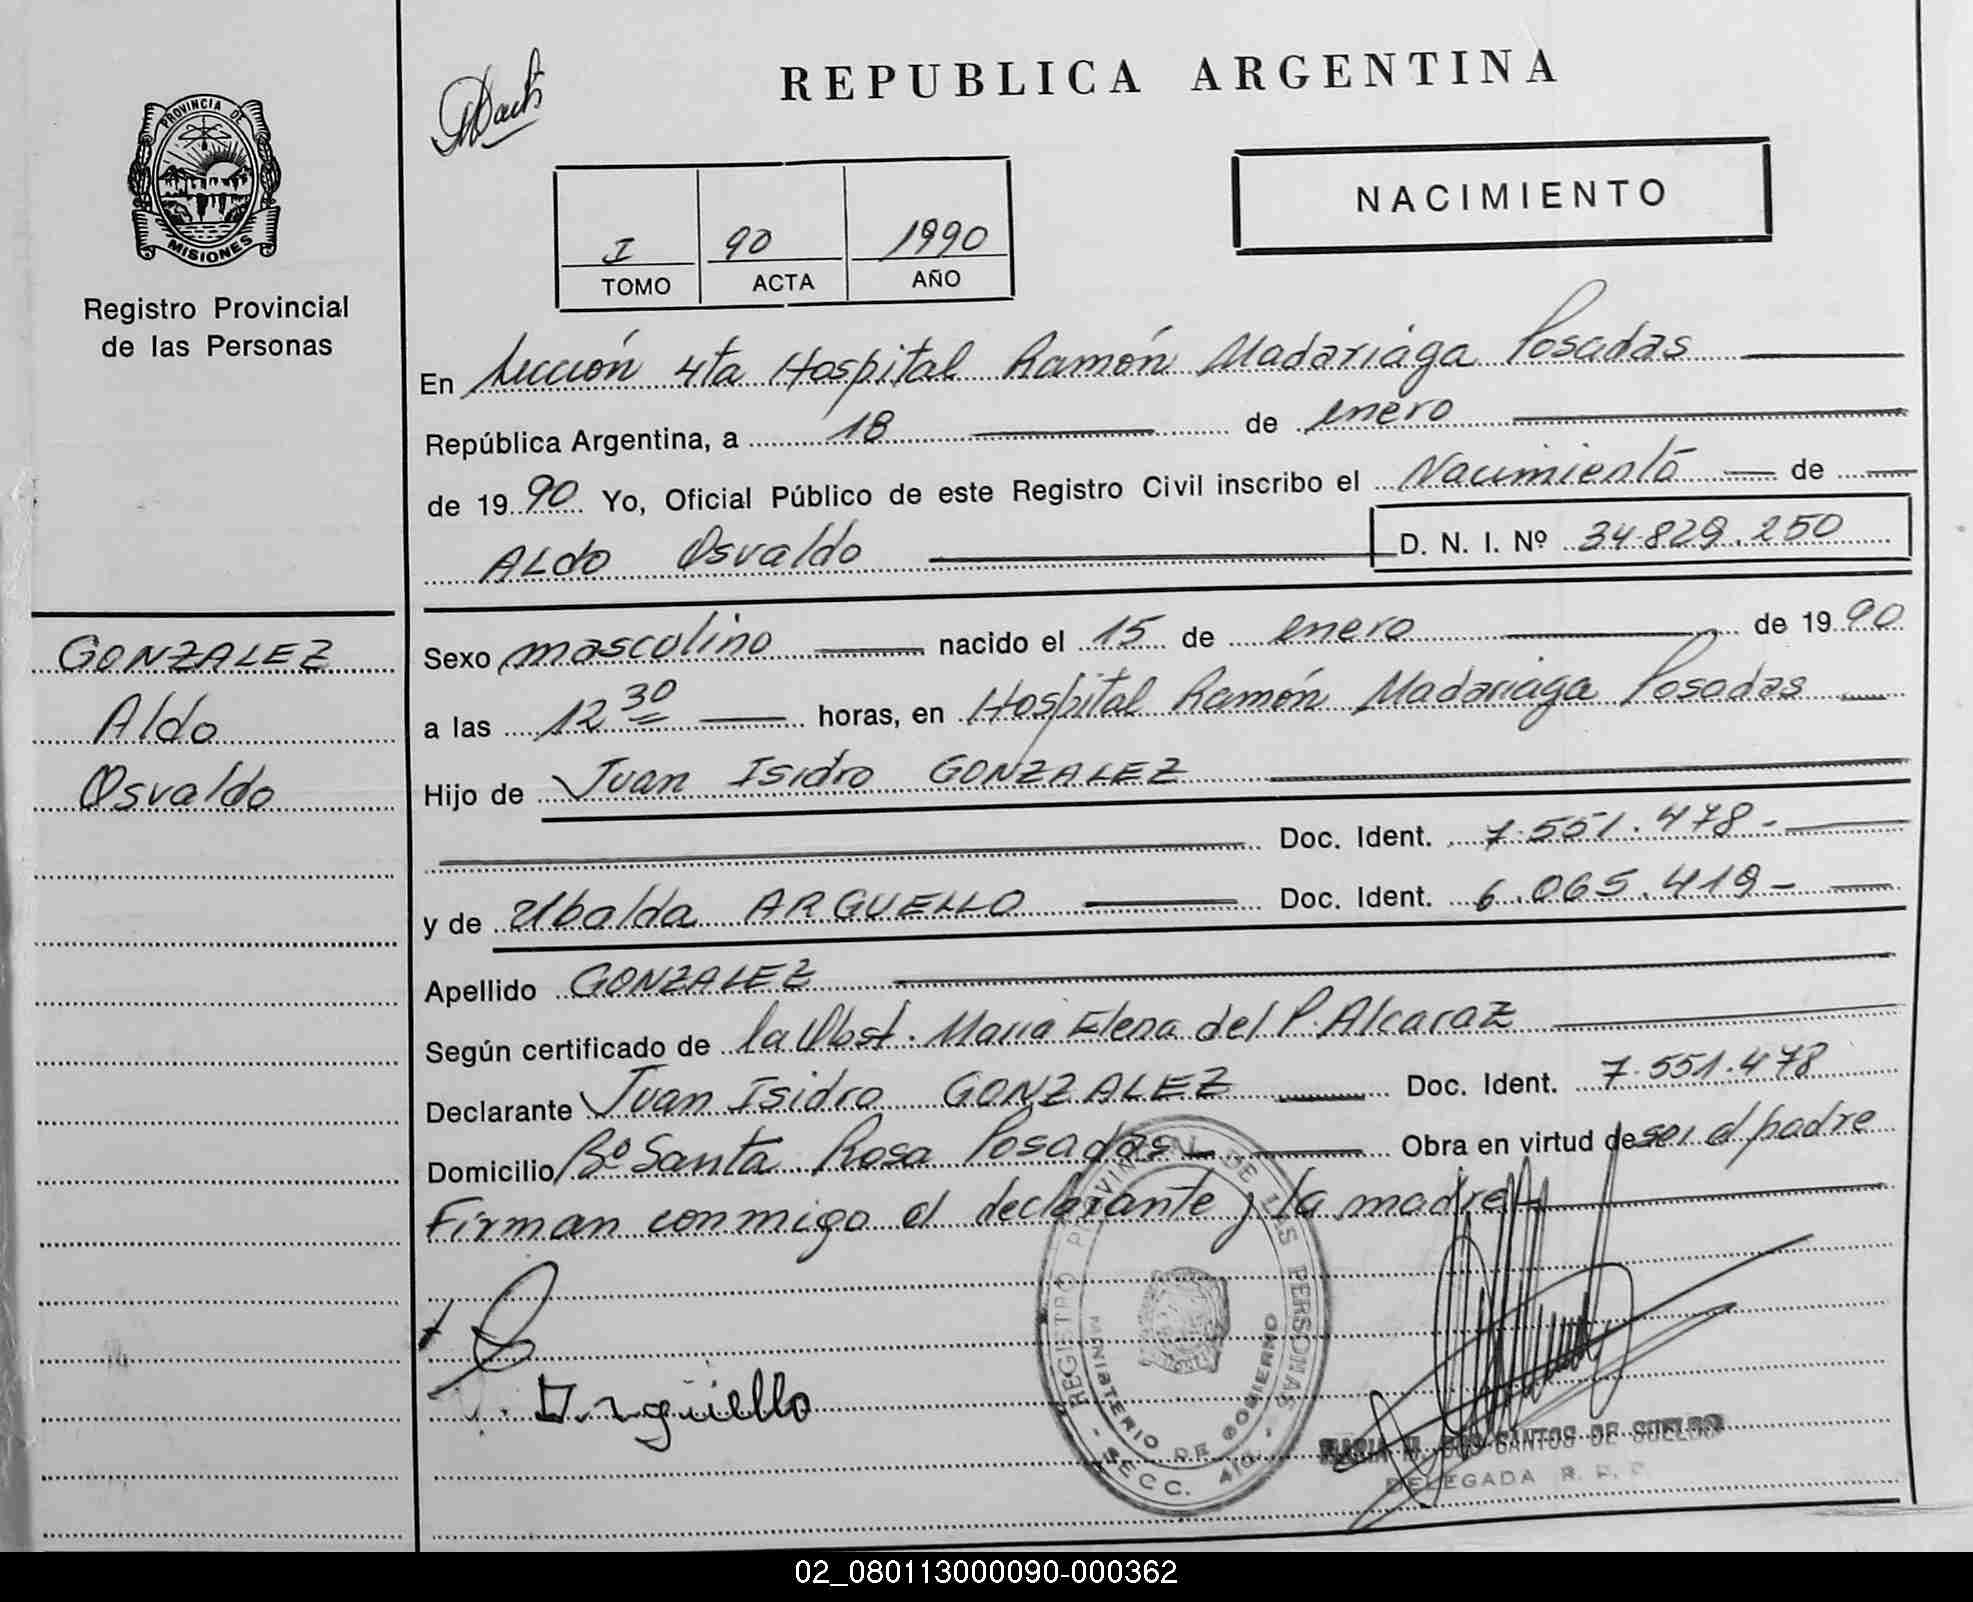 REPUBLICA ARGENTINA
PROVINCIA DE
MISIONES
Registro Provincial
de las Personas
NACIMIENTO
I 90 1990
TOMO ACTA AÑO
En Sección 4ta Hospital Ramón Madariaga Posadas
República Argentina, a 18 de enero
de 1990 Yo, Oficial Público de este Registro Civil inscribo el Nacimiento de
ALdo Osvaldo D. N. I. Nº 34.829.250
GONZALEZ
Aldo
Osvaldo
Sexo masculino nacido el 15 de enero de 1990
a las 12 30 horas, en Hospital Ramón Madariaga Posadas
Hijo de Juan Isidro GONZALEZ
Doc. Ident. 7.551.478-
y de Ubalda ARGUELLO Doc. Ident. 6.065.419-
Apellido GONZALEZ
Según certificado de la Obst. Maria Elena del P. Alcaraz
Declarante Juan Isidro GONZALEZ Doc. Ident. 7.551.478
Domicilio Bº Santa Rosa Posadas Obra en virtud de ser el padre
Firman conmigo el declarante y la madre
Argüello
REGISTRO PROVINCIAL DE LAS PERSONAS
MINISTERIO DE GOBIERNO
- SECC. 4ta -
MARIA M. DOS SANTOS DE SUELDO
DELEGADA R. P. P.
02_080113000090-000362